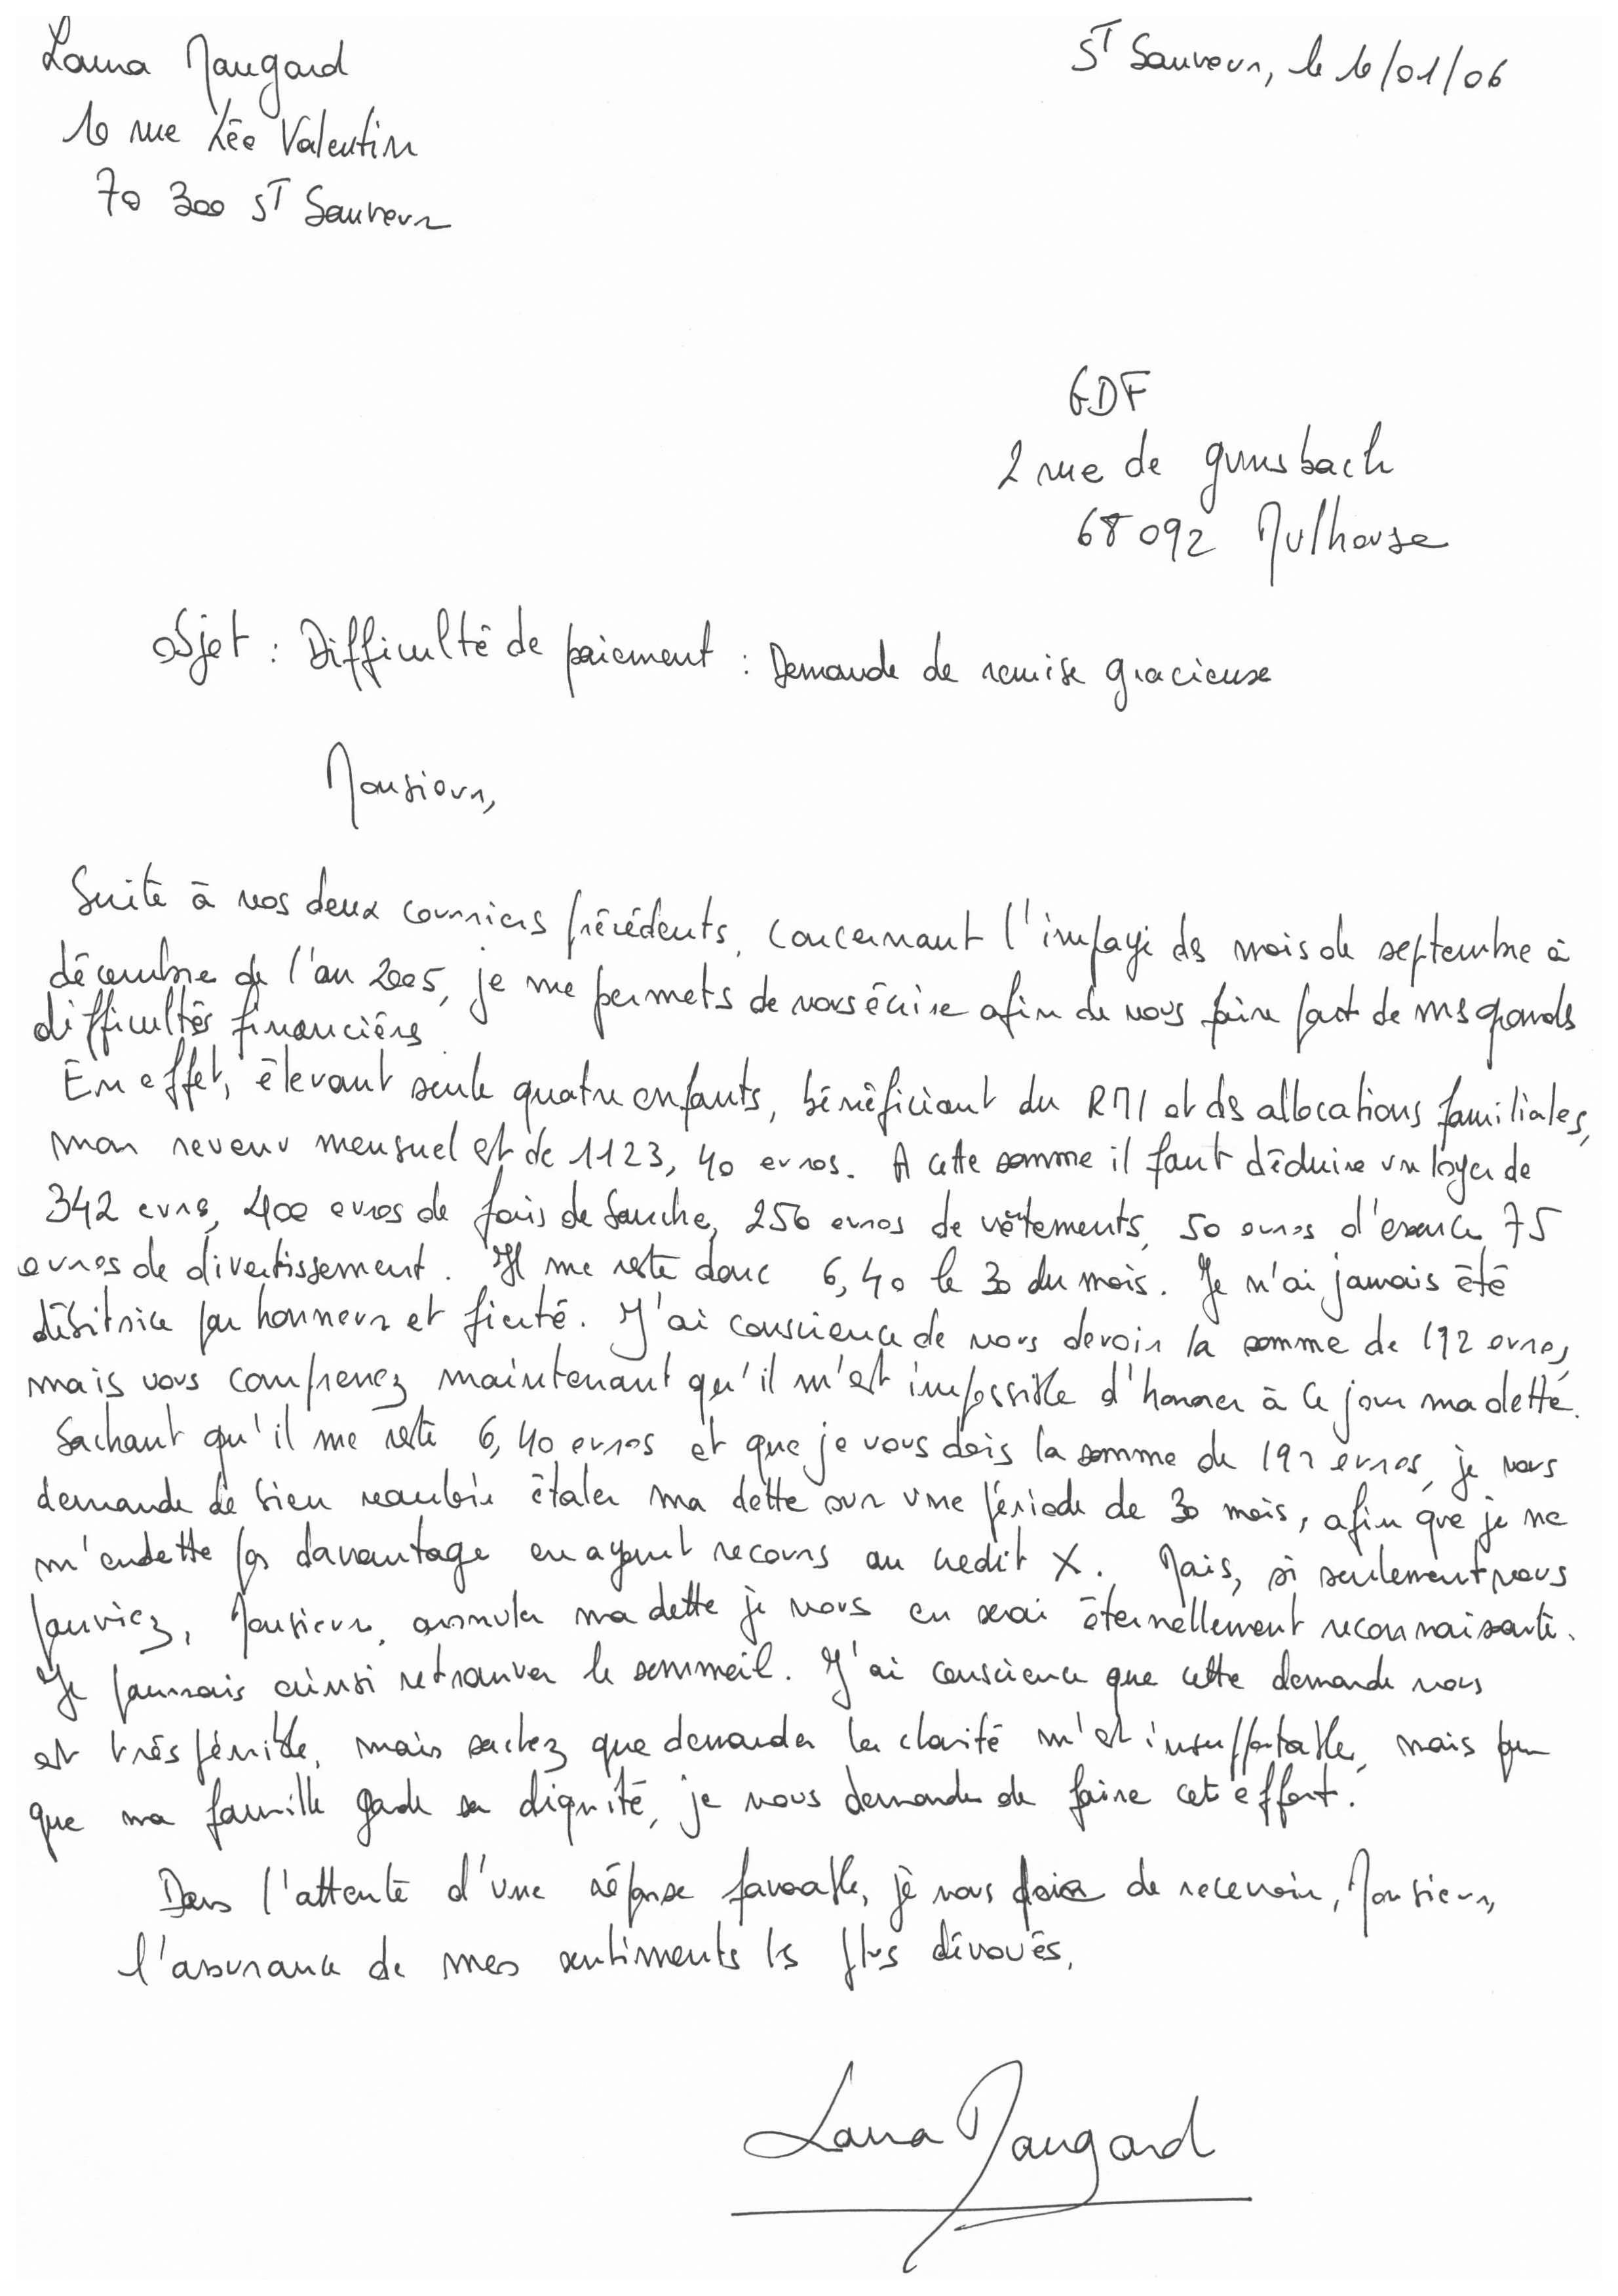 Laura Maugard
10 rue Léo Valentin
70 300 ST Sauveur
ST Sauveur, le 10/01/06
GDF
2 rue de gunsbach
68 092 Mulhouse
objet : Difficulté de paiement : Demande de remise gracieuse
Monsieur,
Suite à vos deux courriers précédents, concernant l'impayé des mois de septembre à
décembre de l'an 2005, je me permets de vous écrire afin de vous faire part de mes grands
difficultés financières
En effet, élevant seule quatre enfants, bénéficiant du RMI et des allocations familiales,
mon revenu mensuel est de 1123, 40 euros. A cette somme il faut déduire un loyer de
342 euros, 400 euros de frais de bouche, 250 euros de vêtements, 50 euros d'essence, 75
euros de divertissement. Il me reste donc 6,40 le 30 du mois. Je n'ai jamais été
débitrice par honneur et fierté. J'ai conscience de vous devoir la somme de 192 euros,
mais vous comprenez maintenant qu'il m'est impossible d'honorer à ce jour ma dette.
Sachant qu'il me reste 6,40 euros et que je vous dois la somme de 192 euros, je vous
demande de bien vouloir étaler ma dette sur une période de 30 mois, afin que je ne
m'endette pas davantage en ayant recours au credit X. Mais, si seulement vous
pouviez, Monsieur, annuler ma dette je vous en serai éternellement reconnaissante.
Je pourrais ainsi retrouver le sommeil. J'ai conscience que cette demande vous
est très pénible, mais sachez que demander la charité m'est insupportable, mais pour
que ma famille garde sa dignité, je vous demande de faire cet effort.
Dans l'attente d'une réponse favorable, je vous prie de recevoir, Monsieur,
l'assurance de mes sentiments les plus dévoués.
Laura Maugard